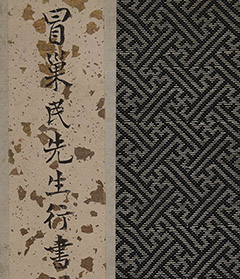 冒巢民先生行書